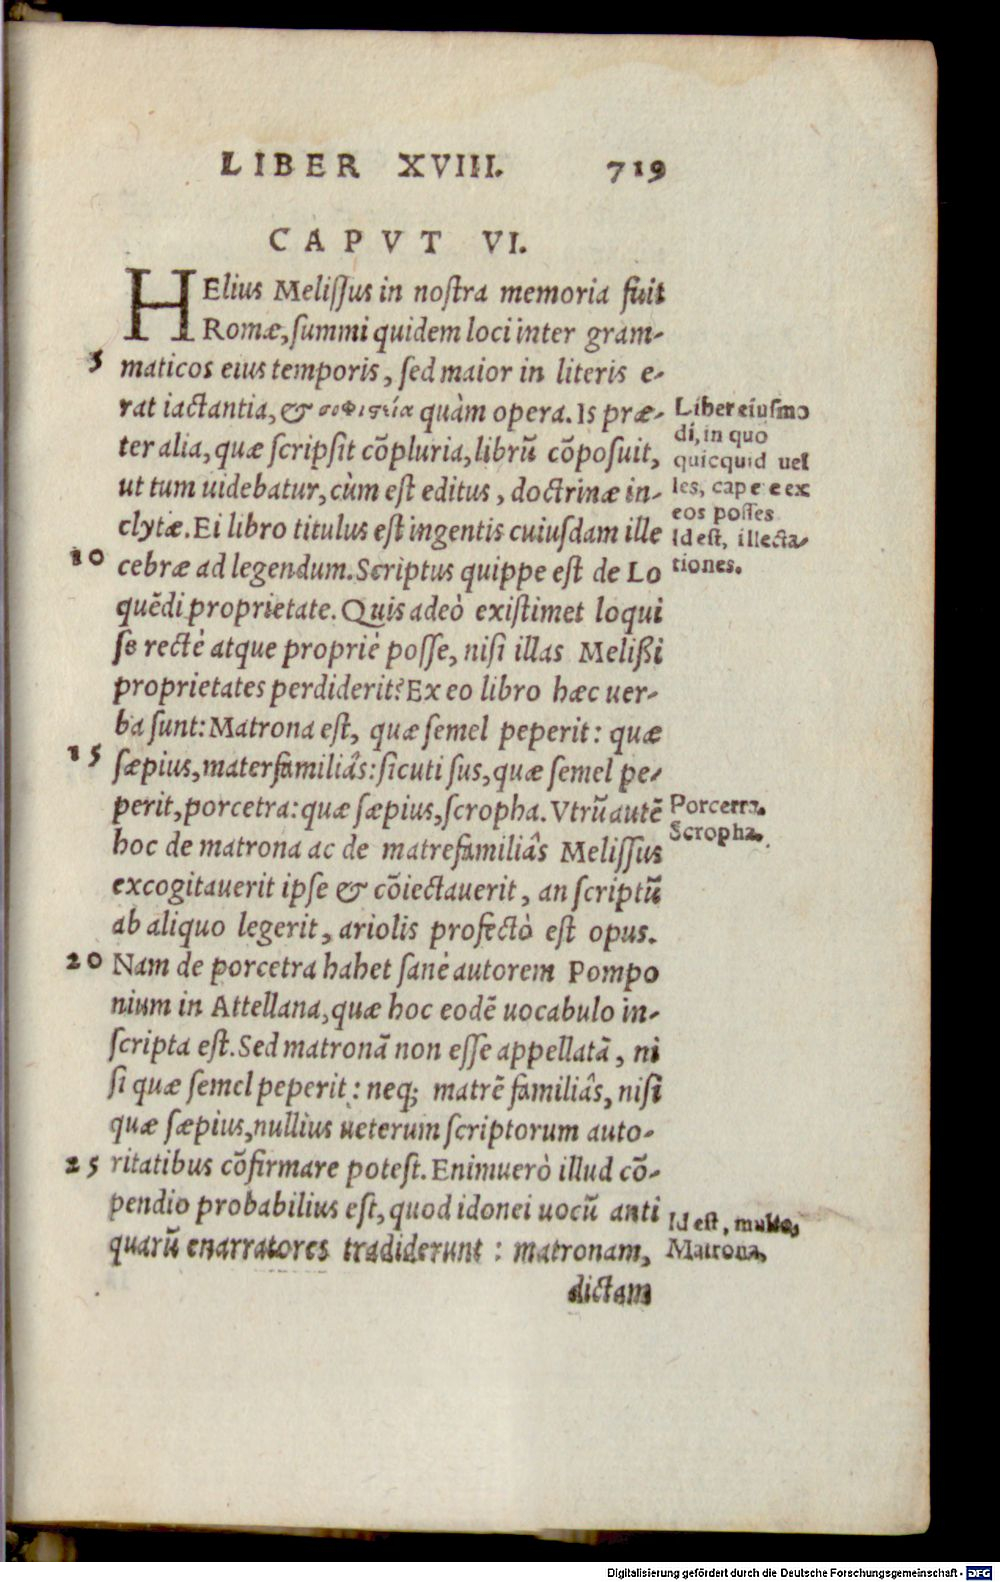 LIBER XVIII. 719
CAPVT VI.
HElius Melissus in nostra memoria fuit
Romæ, summi quidem loci inter gram-
5 maticos eius temporis, sed maior in literis e-
rat iactantia, & σοφιστεία quàm opera. Is præ-
ter alia, quæ scripsit cõpluria, librũ cõposuit,
ut tum uidebatur, cùm est editus, doctrinæ in-
clytæ. Ei libro titulus est ingentis cuiusdam ille
10 cebræ ad legendum. Scriptus quippe est de Lo
quẽdi proprietate. Quis adeò existimet loqui
se rectè atque propriè posse, nisi illas Melißi
proprietates perdiderit? Ex eo libro hæc uer-
ba sunt: Matrona est, quæ semel peperit: quæ
15 sæpius, materfamiliâs: sicuti sus, quæ semel pe-
perit, porcetra: quæ sæpius, scropha. Vtrũ autẽ
hoc de matrona ac de matrefamiliâs Melissus
excogitauerit ipse & cõiectauerit, an scriptũ
ab aliquo legerit, ariolis profectò est opus.
20 Nam de porcetra habet sanè autorem Pompo
nium in Attellana, quæ hoc eodẽ uocabulo in-
scripta est. Sed matronã non esse appellatã, ni
si quæ semel peperit: neq; matrẽ familiâs, nisi
quæ sæpius, nullius ueterum scriptorum auto-
25 ritatibus cõfirmare potest. Enimuerò illud cõ-
pendio probabilius est, quod idonei uocũ anti
quarũ enarratores tradiderunt: matronam,
dictam
Liber eiusmo
di, in quo
quicquid uel
les, capere ex
eos posses
Id est, illecta-
tiones.
Porcetra.
Scropha.
Id est, multo,
Matrona,
Digitalisierung gefördert durch die Deutsche Forschungsgemeinschaft - DFG